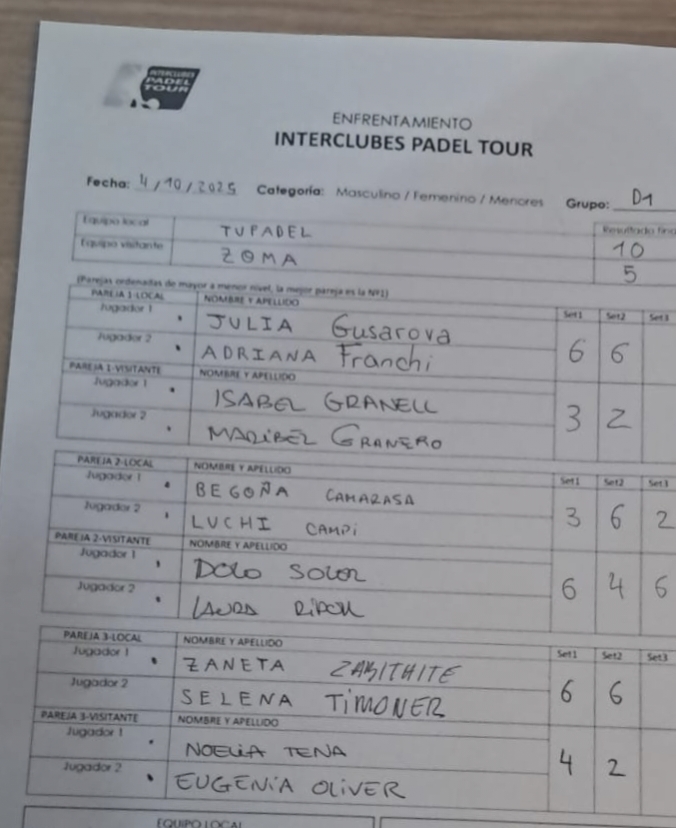 INTERCLUBES
PADEL
TOUR
ENFRENTAMIENTO
INTERCLUBES PADEL TOUR
Fecha: 4/10/2025 Categoría: Masculino / Femenino / Menores Grupo: D1
Equipo local TUPADEL Resultado fin
10
Equipo visitante ZOMA 5
(Parejas ordenadas de mayor a menor nivel, la mejor pareja es la Nº1)
PAREJA 1-LOCAL NOMBRE Y APELLIDO Set1 Set2 Set3
Jugador 1 JULIA Gusarova
Jugador 2 ADRIANA Franchi 6 6
PAREJA 1-VISITANTE NOMBRE Y APELLIDO
Jugador 1 ISABEL GRANELL
Jugador 2 MARIBEL GRANERO 3 2
PAREJA 2-LOCAL NOMBRE Y APELLIDO Set1 Set2 Set3
Jugador 1 BEGOÑA CAMARASA
Jugador 2 LUCHI CAMPI 3 6 2
PAREJA 2-VISITANTE NOMBRE Y APELLIDO
Jugador 1 DOLO SOLER
Jugador 2 LAURA RIPOLL 6 4 6
PAREJA 3-LOCAL NOMBRE Y APELLIDO Set1 Set2 Set3
Jugador 1 ZANETA
Jugador 2 SELENA TIMONER 6 6
PAREJA 3-VISITANTE NOMBRE Y APELLIDO
Jugador 1 NOELIA TENA
Jugador 2 EUGENIA OLIVER 4 2
EQUIPO LOCAL